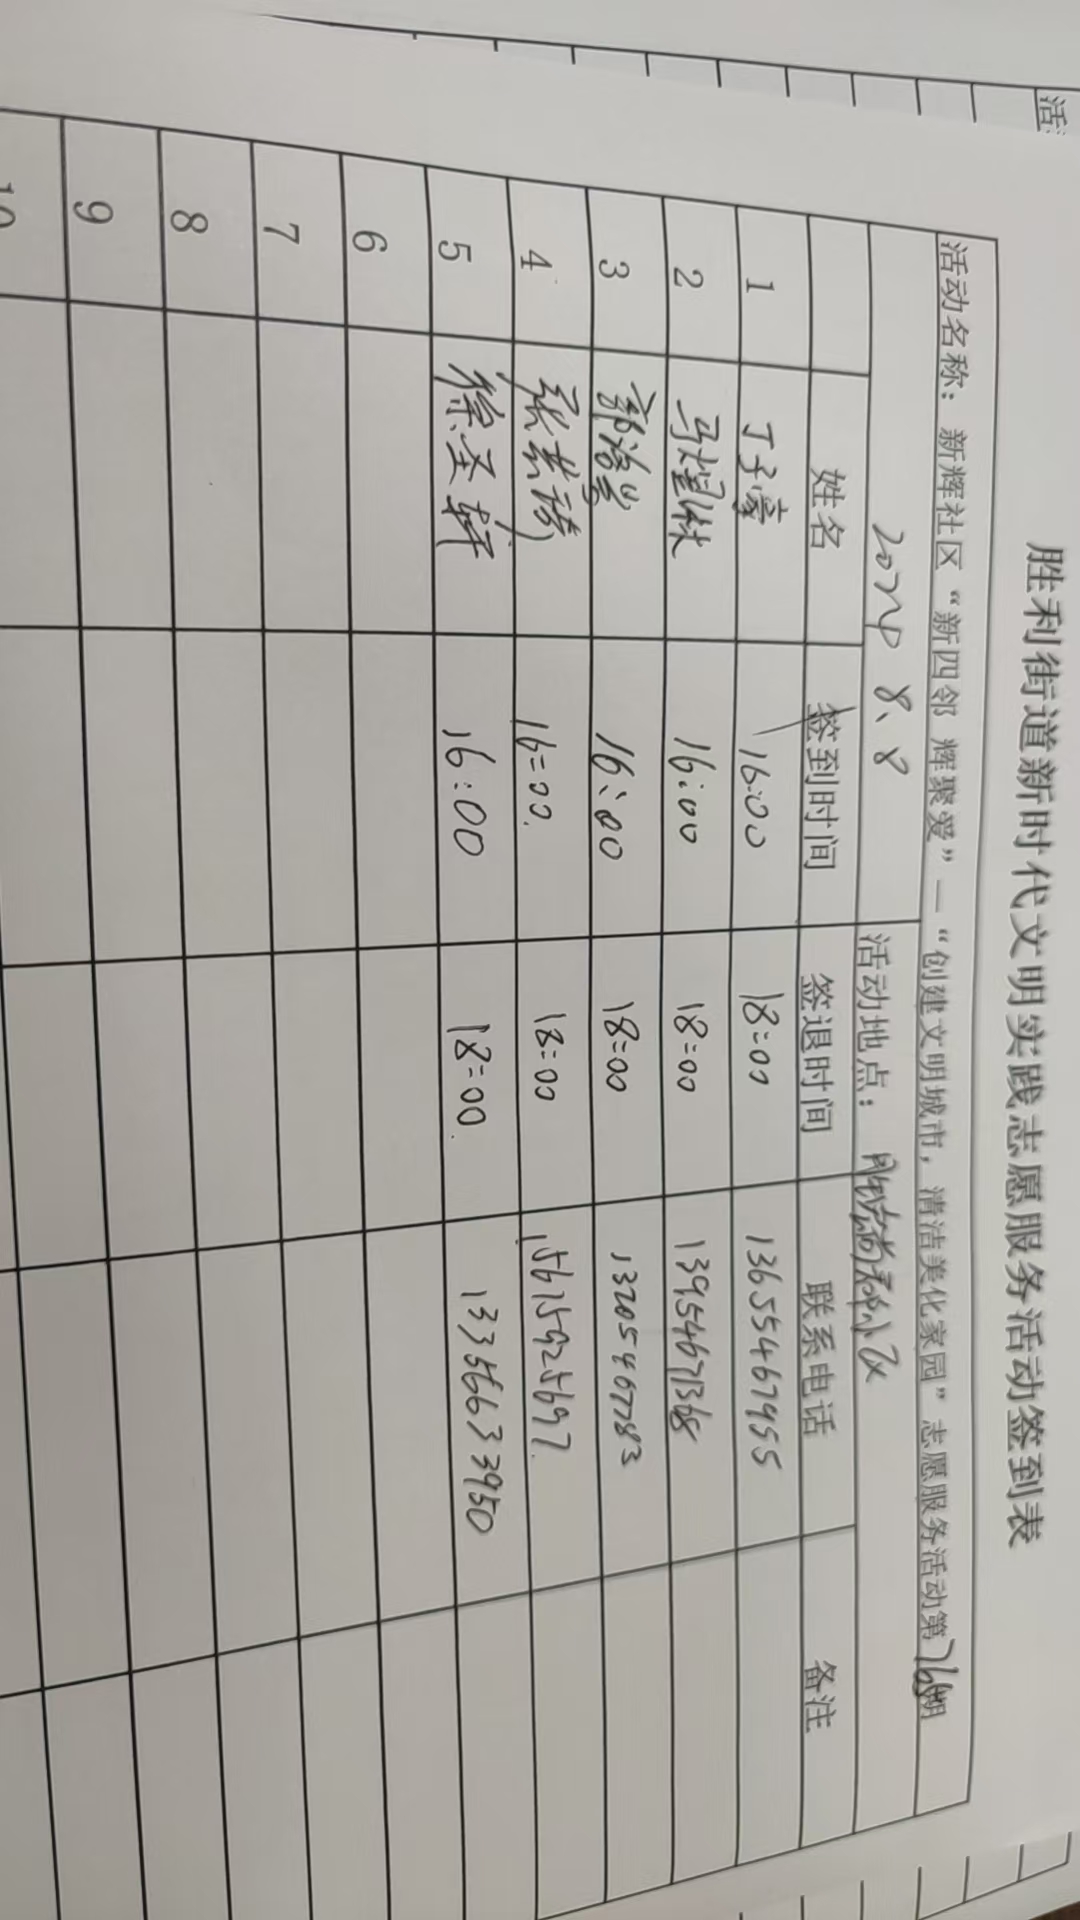 活
胜利街道新时代文明实践志愿服务活动签到表
活动名称：新辉社区“新四邻 辉聚爱”—“创建文明城市，清洁美化家园”志愿服务活动第76期
8、8 活动地点：
姓名 签到时间 签退时间 联系电话 备注
1 丁子豪 16:00 18=00 13655467955
2 16:00 18=00 13954671368
3 16:00 18=00 13205467783
4 16=00. 18=00 15615925697.
5 徐圣轩 16:00 18=00. 13356633950
6
7
8
9
10